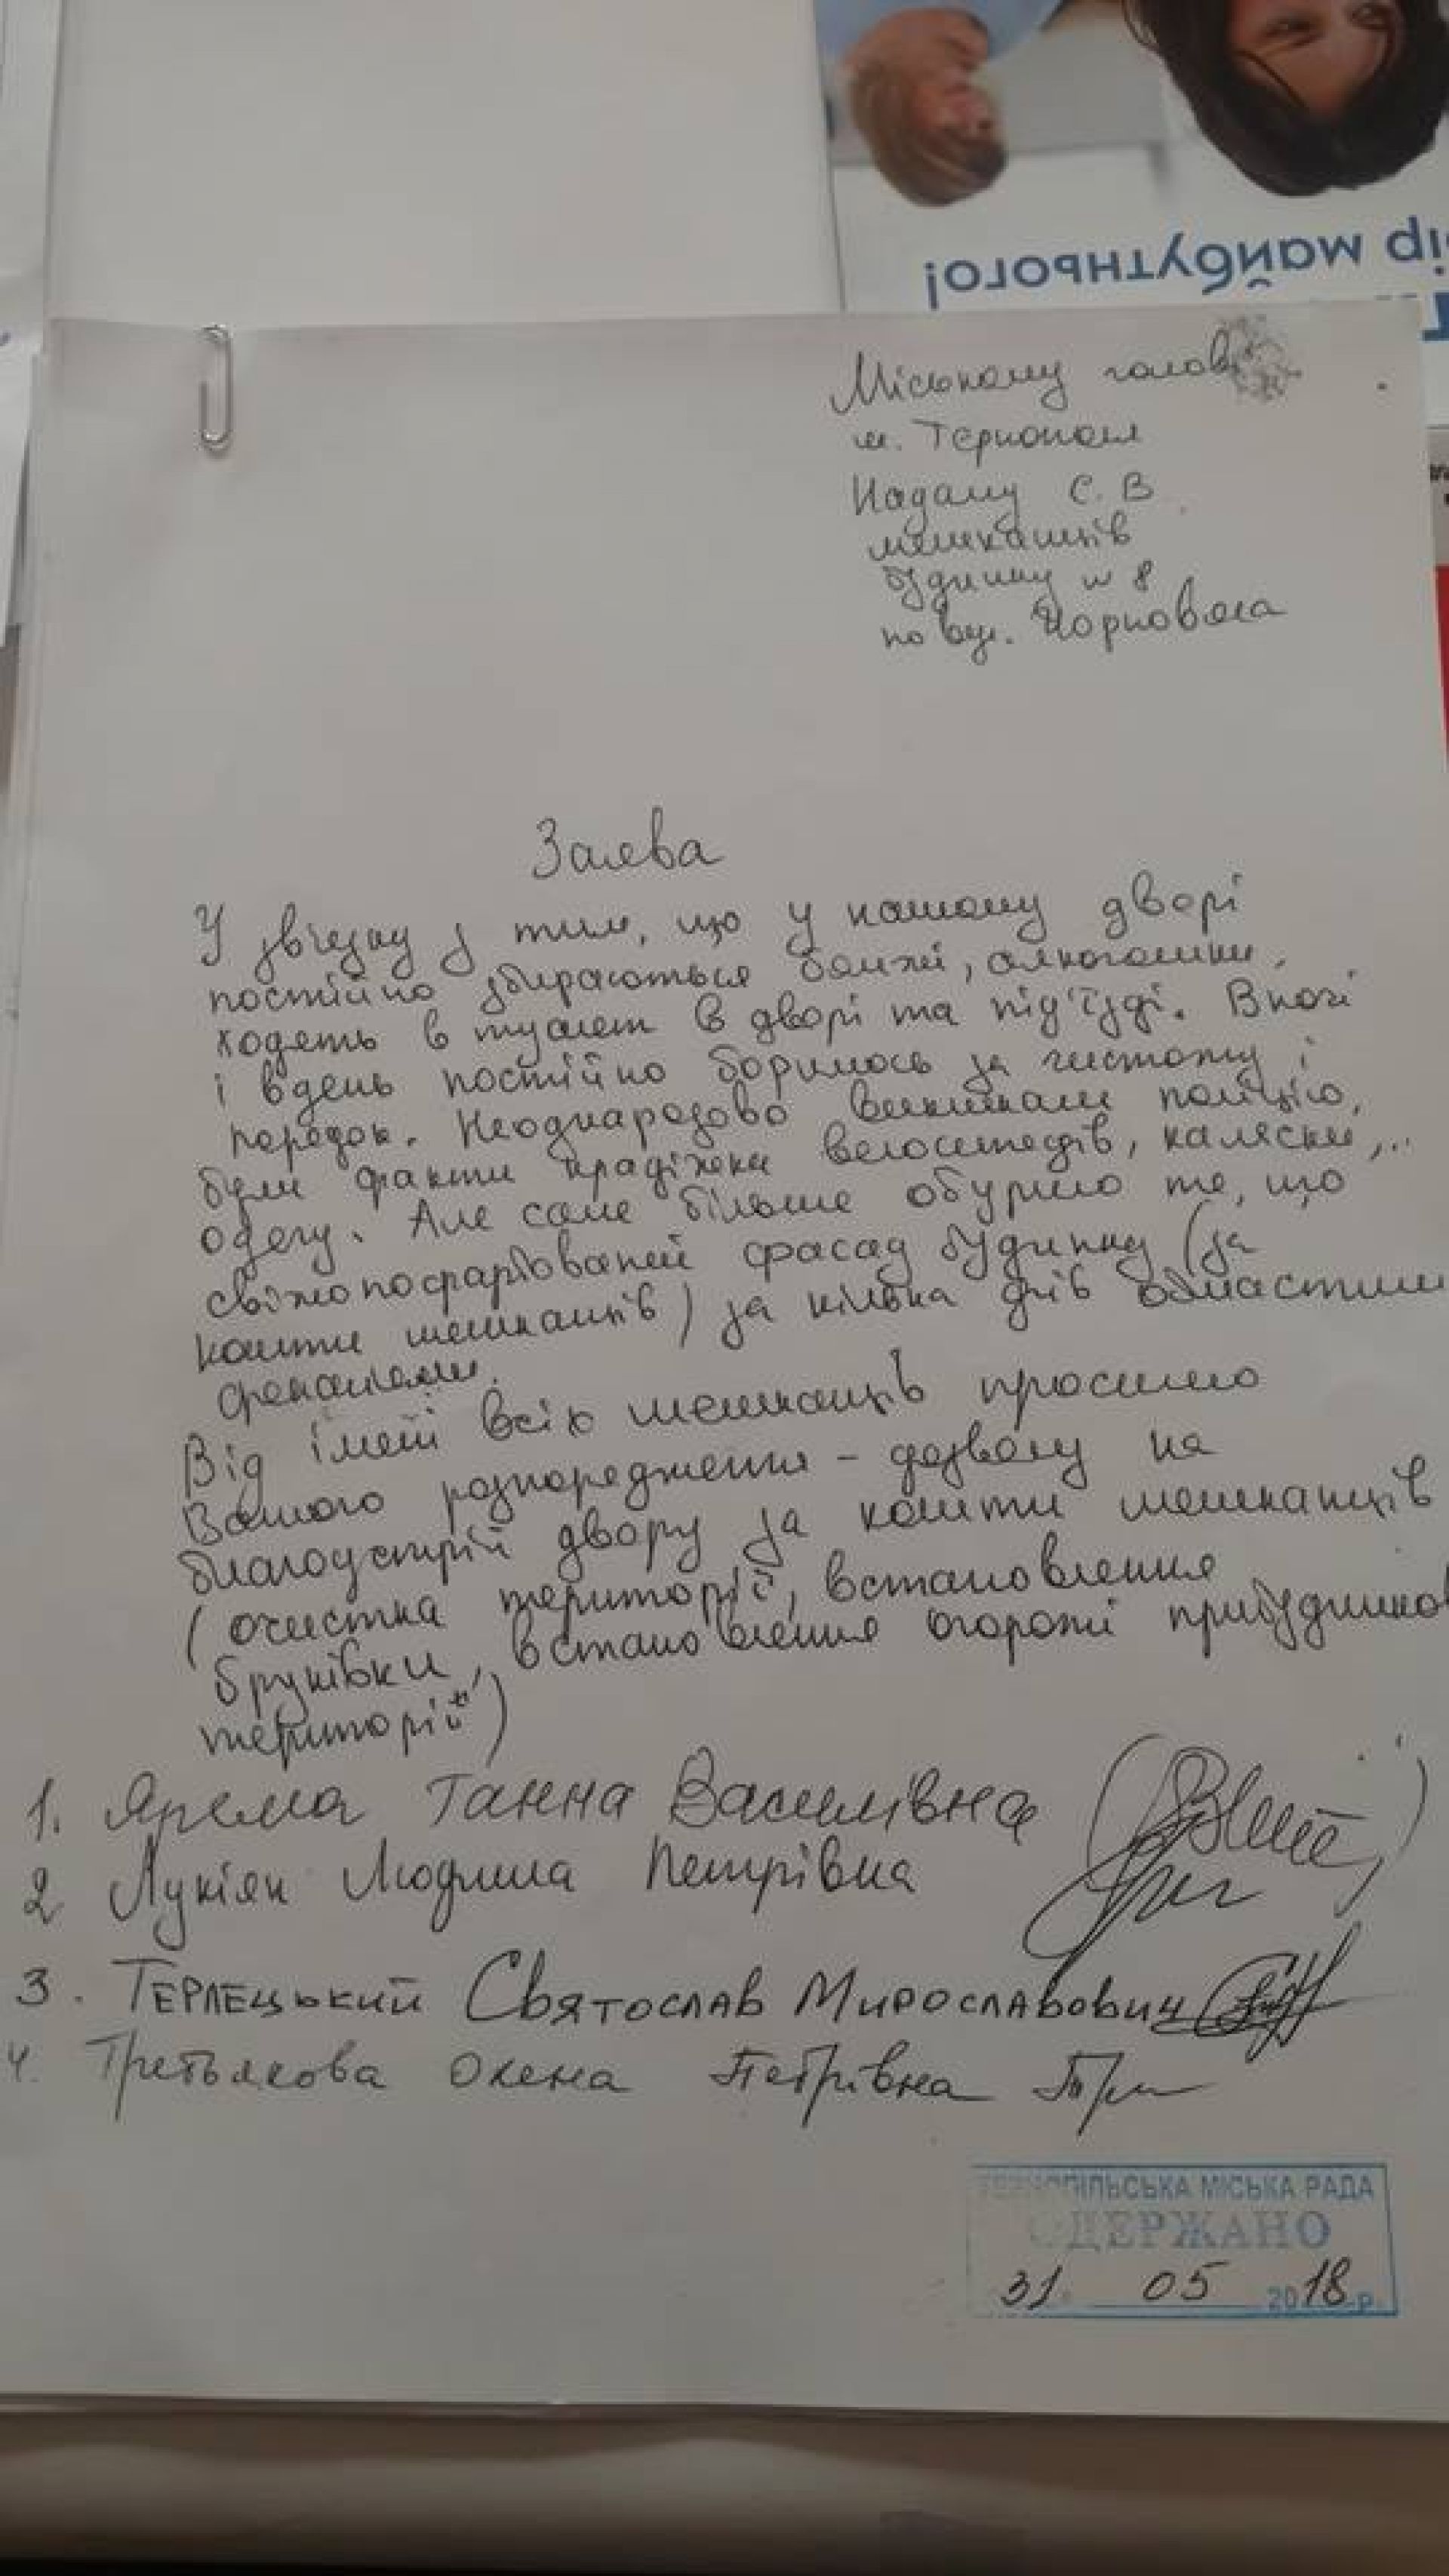 ір майбутнього!
Міському голові
м. Тернополя
Надалу С. В
мешканців
будинку № 8
по вул. Чорновола
Заява
У зв'язку з тим, що у нашому дворі
постійно збираються бомжі, алкоголіки,
ходять в туалет в дворі та під'їзді. Вночі
і вдень постійно боримось за чистоту і
порядок. Неодноразово викликали поліцію,
були факти крадіжки велосипедів, каляски,..
одягу. Але саме більше обурило те, що
свіжопофарбований фасад будинку (за
кошти мешканців) за кілька днів обмастили
фекаліями.
Від імені всіх мешканців просимо
Вашого розпорядження - дозволу на
благоустрій двору за кошти мешканців
(очистка території, встановлення
бруківки, встановлення огорожі прибудинков
території)
1. Ярема Ганна Василівна
2 Лукіян Людмила Петрівна
3. Терлецький Святослав Мирославович
4. Третьякова Олена Петрівна
ТЕРНОПІЛЬСЬКА МІСЬКА РАДА
ОДЕРЖАНО
31 05 2018 р.